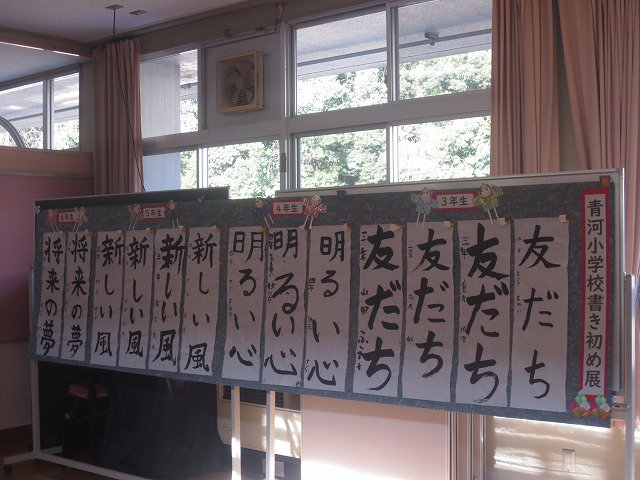 青河小学校書き初め展
3年生
友だち
友だち
友だち
友だち
4年生
明るい心
明るい心
明るい心
5年生
新しい風
新しい風
新しい風
新しい風
6年生
将来の夢
将来の夢